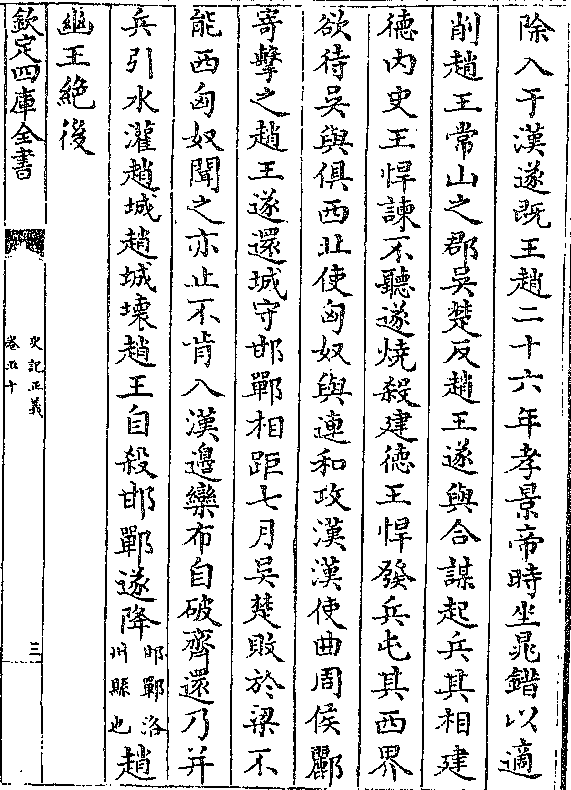 除入于漢遂既王趙二十六年孝景帝時坐晁錯以適
削趙王常山之郡吳楚反趙王遂與合謀起兵其相建
德內史王悍諫不聽遂燒殺建德王悍發兵屯其西界
欲待吳與俱西北使匈奴與連和攻漢漢使曲周侯酈
寄擊之趙王遂還城守邯鄲相距七月吳楚敗於梁不
能西匈奴聞之亦止不肯入漢邊欒布自破齊還乃并
兵引水灌趙城趙城壊趙王自殺邯鄲遂降邯鄲洛州縣也趙
幽王絶後
欽定四庫全書
史記正義
卷五十
三